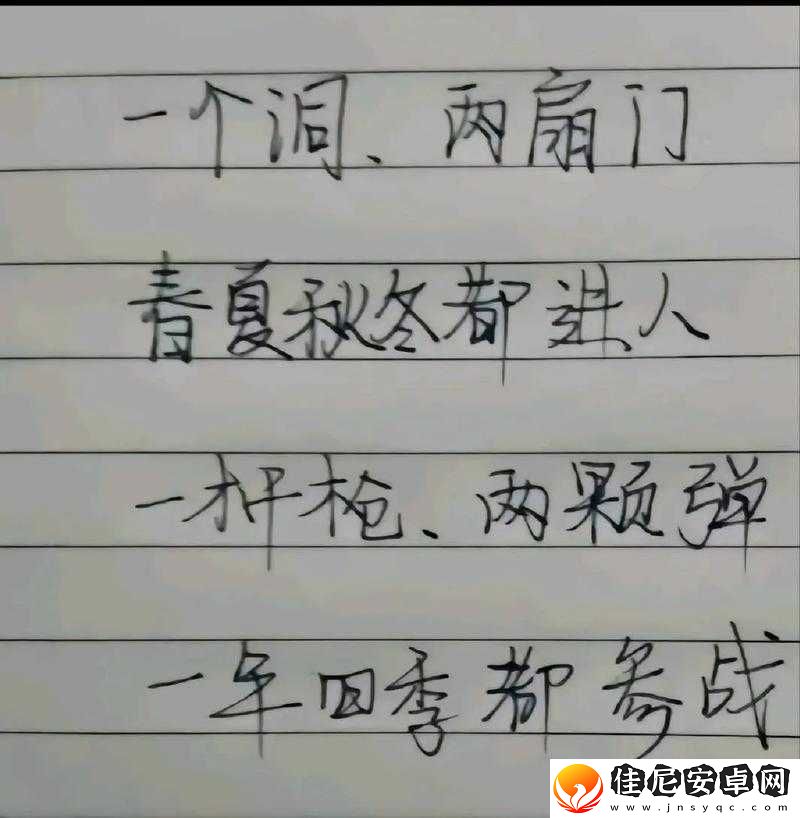 一个洞、两扇门
春夏秋冬都进人
一杆枪、两颗弹
一年四季都参战
佳尼安卓网
www.jnsyqc.com